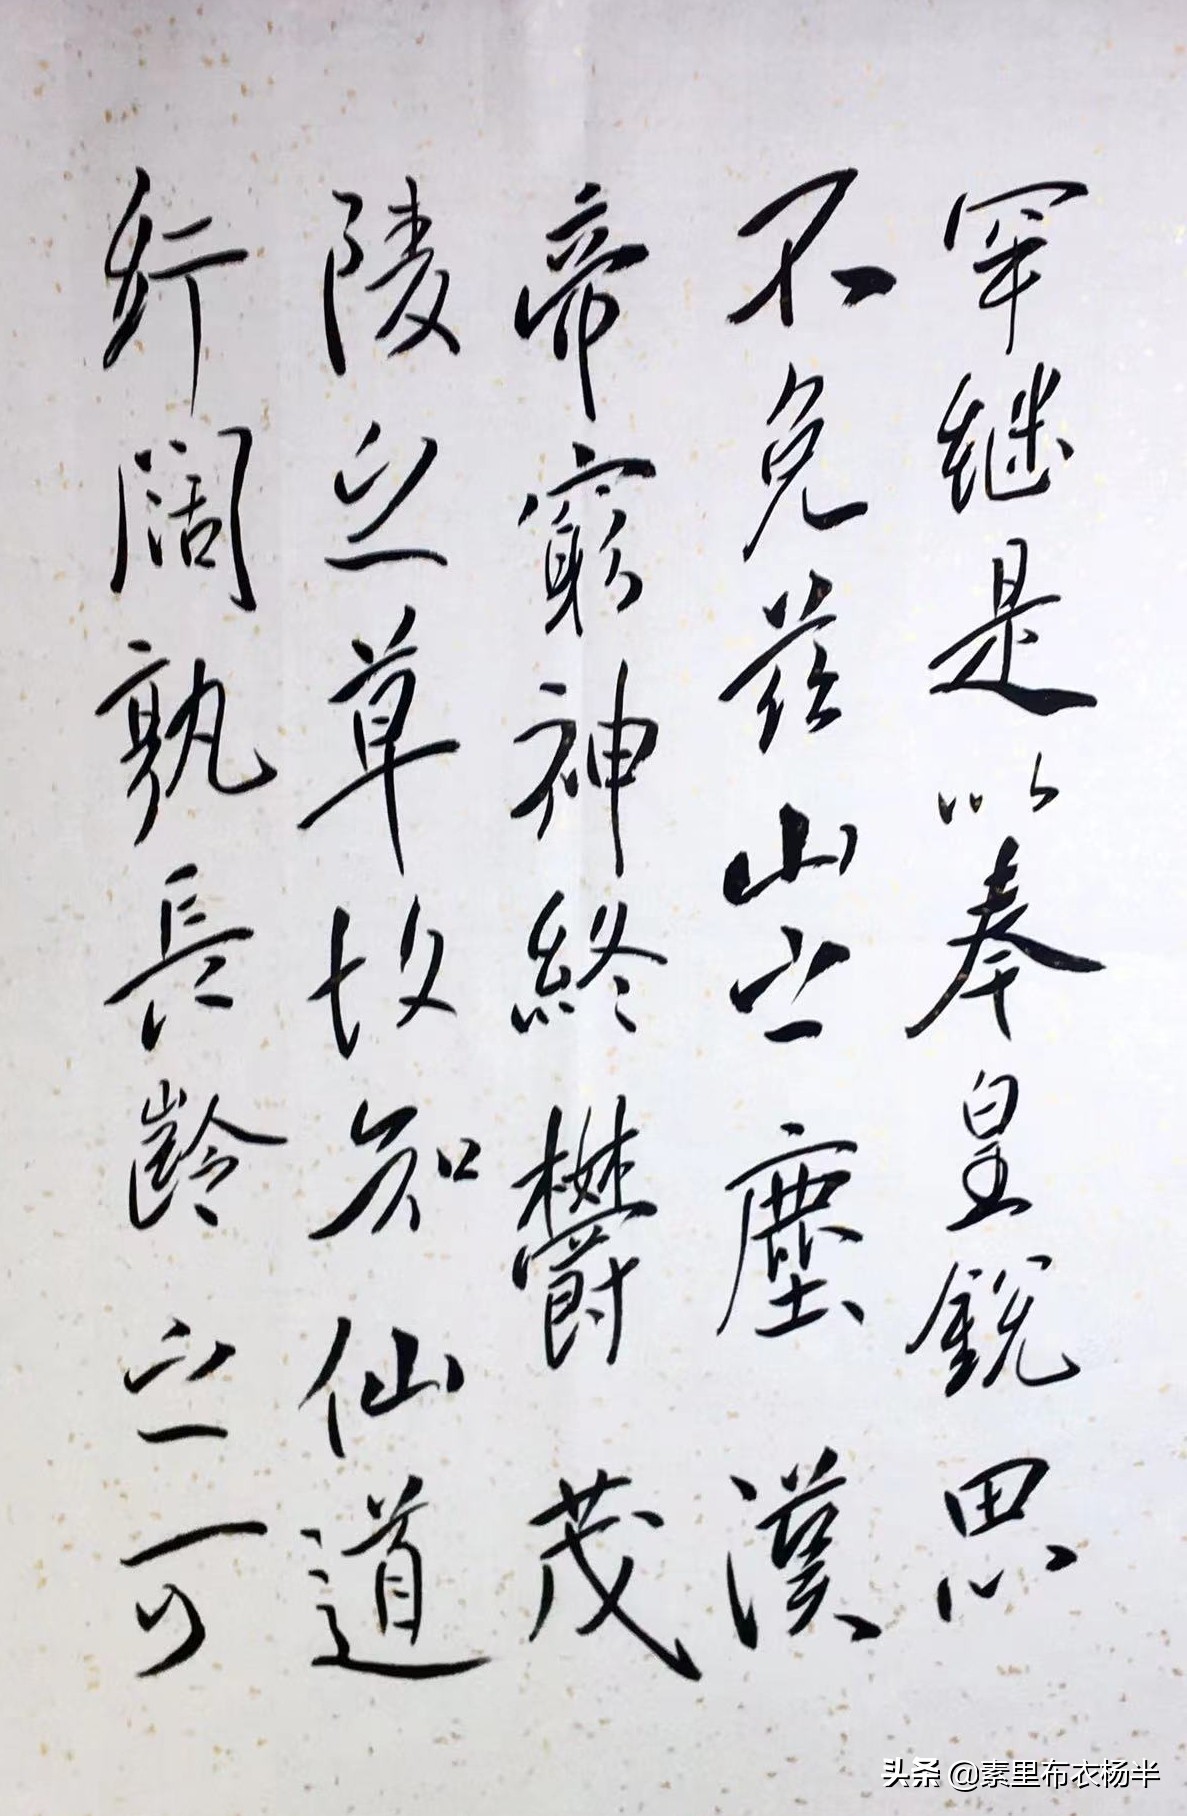 罕继是以秦皇銳思
不免茲山之塵漢
帝窮神終欝茂
陵之草故知仙道
紆闊孰長齡之可
头条 @素里布衣杨半